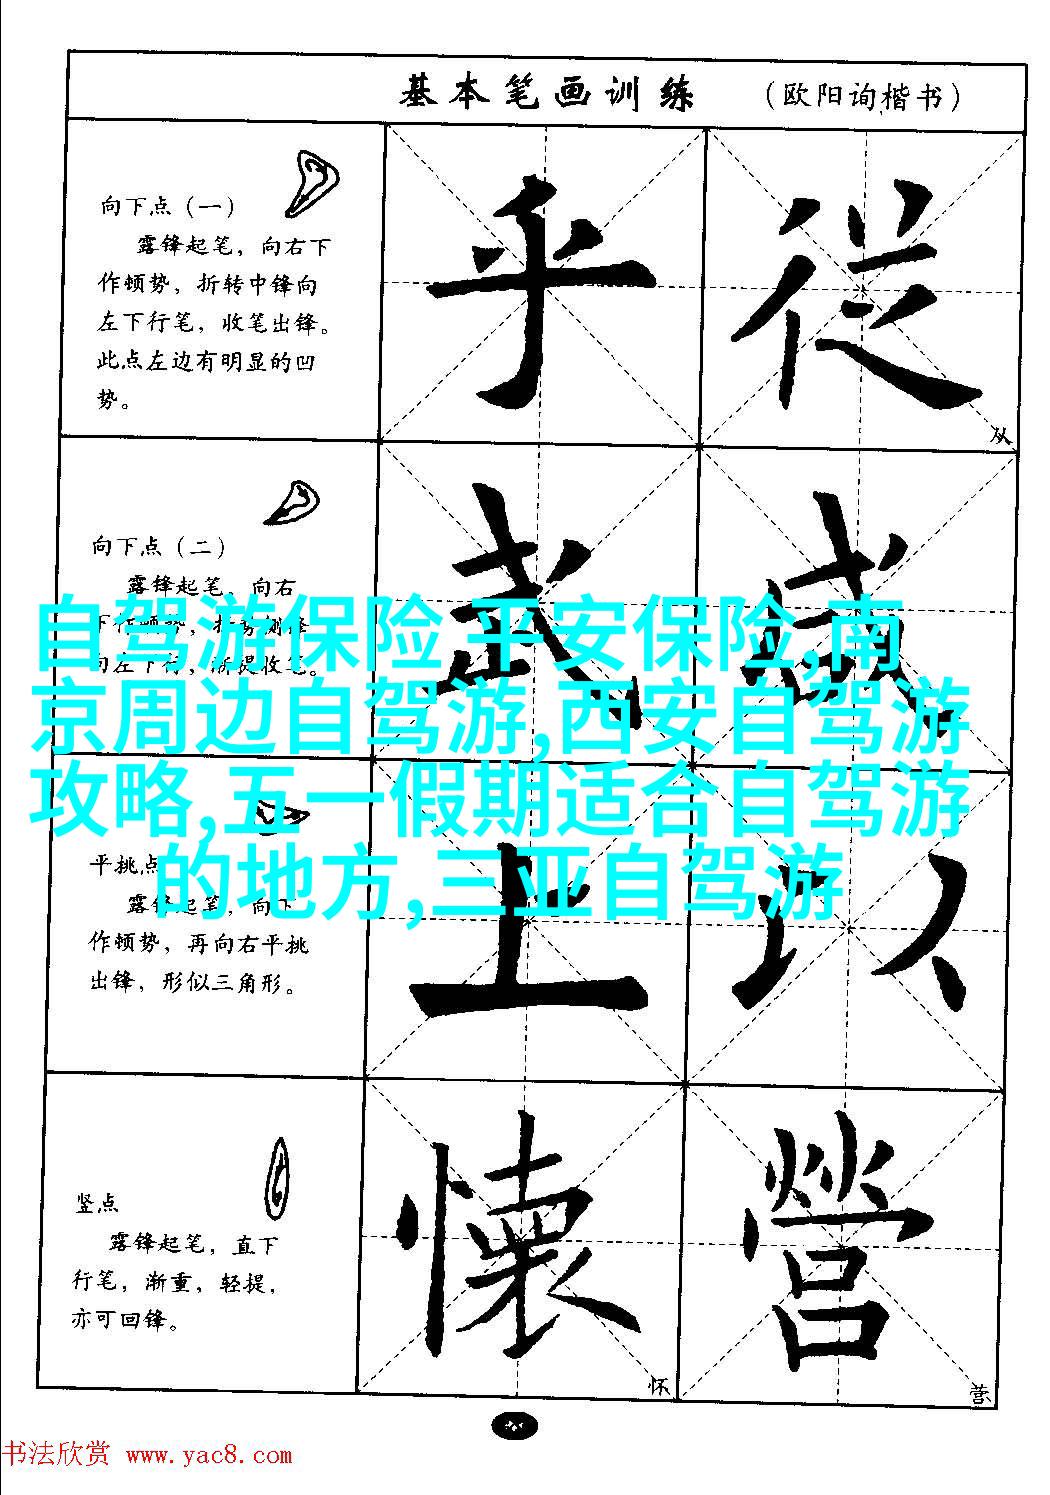 基本笔画训练 （欧阳询楷书）
向下点（一）
露锋起笔，向右下
作顿势，折转中锋向
左下行笔，收笔出锋。
此点左边有明显的凹
势。
乎 從
从
向下点（二）
露锋起笔。向右
下作顿势，折
向左下行，渐提收笔。
武
自驾游保险,平安保险,南
京周边自驾游,西安自驾游
攻略,五一假期适合自驾游
的地方,三亚自驾游
平挑点
露锋起笔，向下
作顿势，再向右平挑
出锋，形似三角形。
上 以
竖点
露锋起笔，直下
行笔，渐重，轻提，
亦可回锋。
懷 營
怀 营
书法欣赏 www.yac8.com